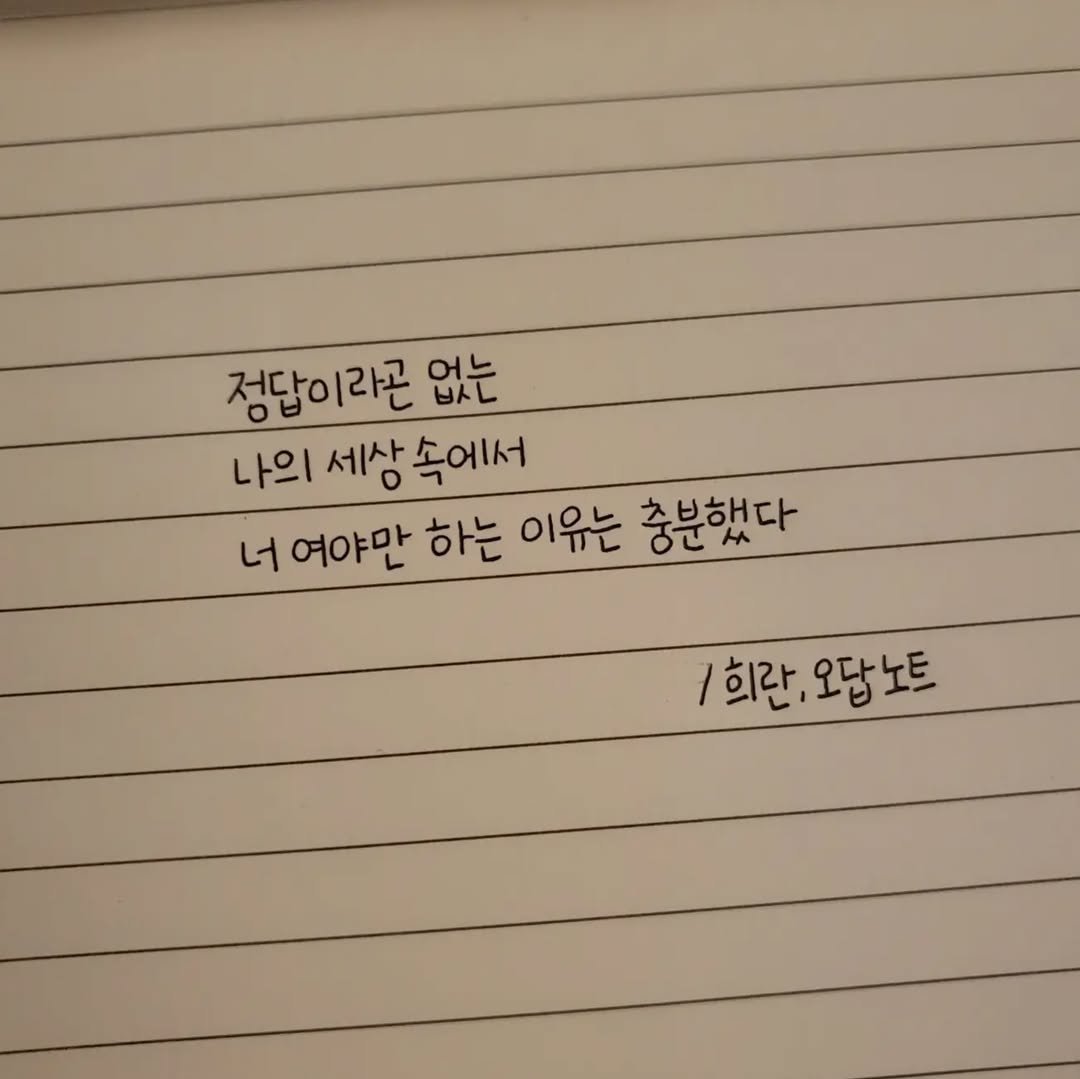 정답이라곤 없는
나의 세상 속에서
너 여야만 하는 이유는 충분했다
/ 희란, 오답노트